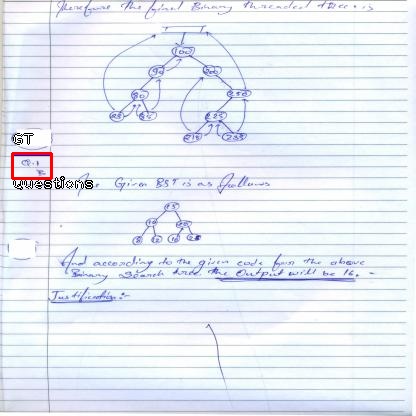 Therefore the final Binary threaded tree is
100
90 200
80 250
225
GT
Q.1
B
questions
The Given BST is as follows
15
10 20
8 12 16 25
And according to the given code from the above
Binary Search tree the Output will be 16.
Justification:-